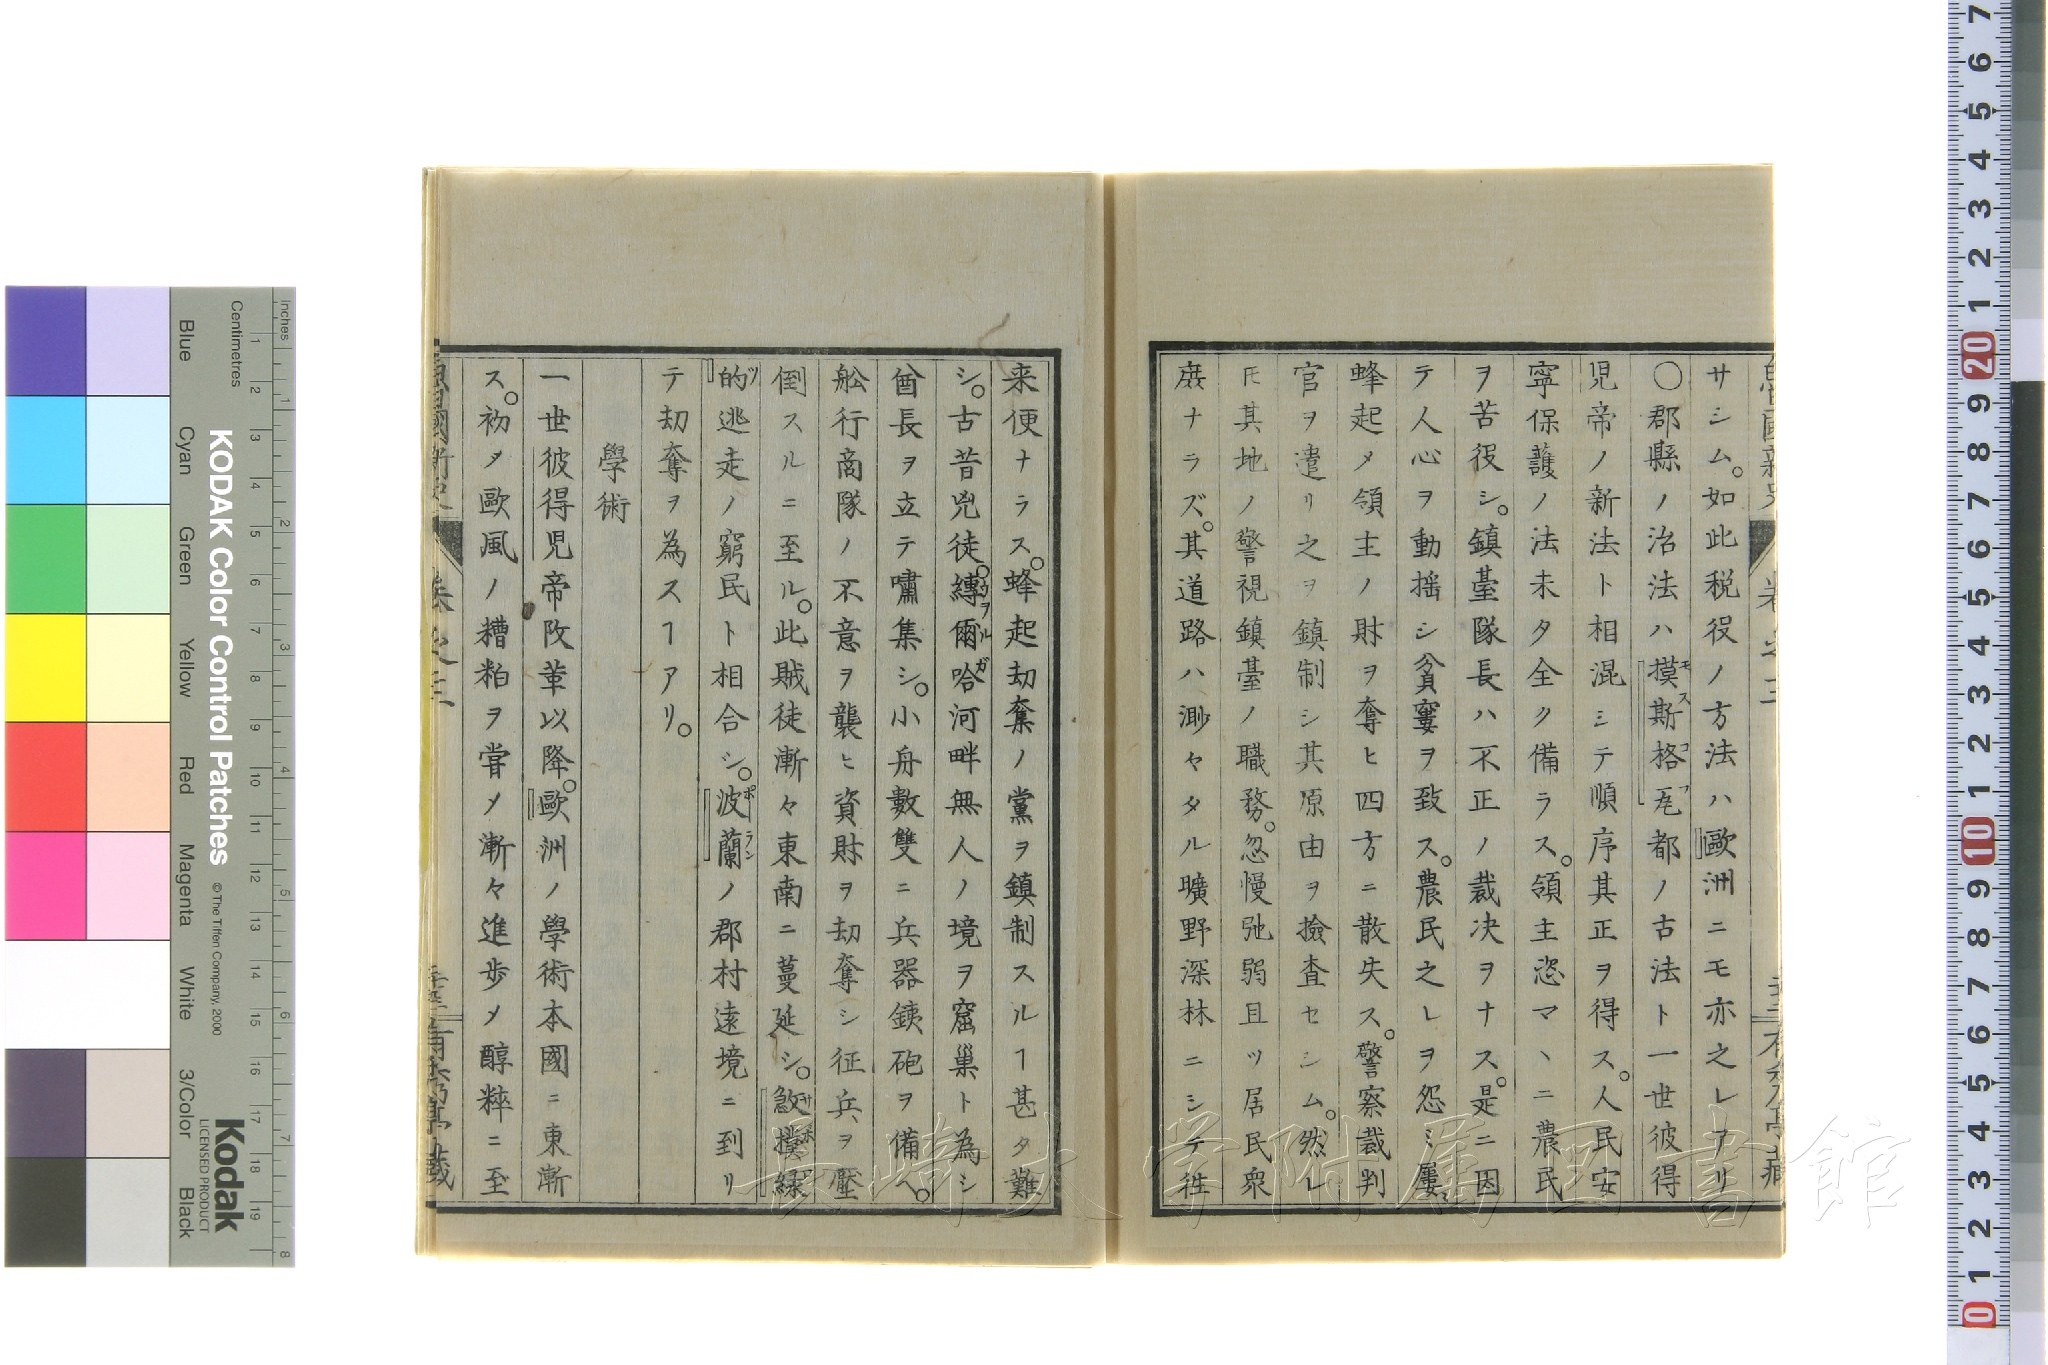 サシム。如此税役ノ方法ハ歐洲ニモ亦之レアリ
〇郡縣ノ治法ハ摸斯格尾都ノ古法ト一世彼得
児帝ノ新法ト相混シテ順序其正ヲ得ス。人民安
寧保護ノ法未タ全ク備ラス。領主恣マヽニ農民
ヲ苦役シ。鎮臺隊長ハ不正ノ裁决ヲナス。是ニ因
テ人心ヲ動揺シ貧窶ヲ致ス。農民之レヲ怨ミ屢
蜂起メ領主ノ財ヲ奪ヒ四方ニ散失ス。警察裁判
官ヲ遣リ之ヲ鎮制シ其原由ヲ撿査セシム。然レ
𪜈其地ノ警視鎮臺ノ職務。忽慢弛弱且ツ居民衆
庶ナラズ。其道路ハ渺々タル曠野深林ニシテ徃
来便ナラス。蜂起劫奪ノ黨ヲ鎮制スルヿ甚タ難
シ。古昔兇徒。縛爾哈河畔無人ノ境ヲ窟巣ト為シ
酋長ヲ立テ嘯集シ。小舟數雙ニ兵器銕砲ヲ備ヘ。
舩行商隊ノ不意ヲ襲ヒ資財ヲ劫奪シ征兵ヲ壓
倒スルニ至ル。此賊徒漸々東南ニ蔓延シ。
的逃走ノ窮民ト相合シ。波蘭ノ郡村遠境ニ到リ
テ劫奪ヲ為スヿアリ。
學術
一世彼得児帝改革以降。歐洲ノ學術本國ニ東漸
ス。初メ歐風ノ糟粕ヲ嘗メ漸々進歩メ醇粹ニ至
KODAK Color Control Patches
© The Tiffen Company, 2000
Kodak
LICENSED PRODUCT
Centimetres
Inches
Blue
Cyan
Green
Yellow
Red
Magenta
White
3/Color
Black
長崎大学附属図書館